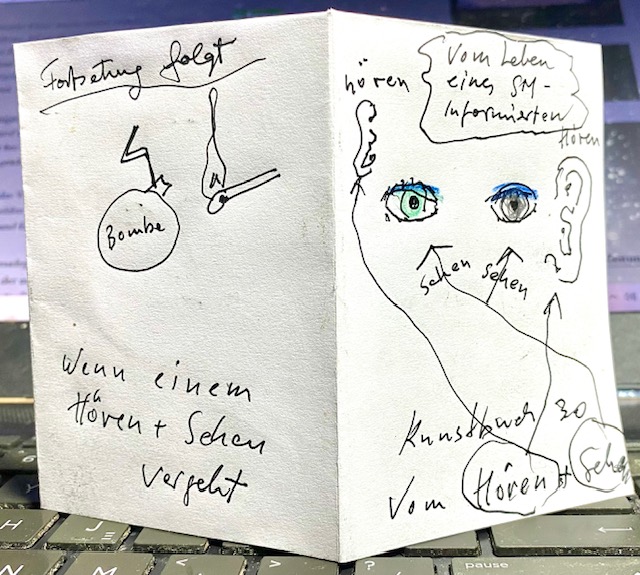 Fortsetung folgt
Bombe
Wenn einem
Hören + Sehen
vergeht
hören
Vom Leben
eines SM-
Informierten
Hören
Sehen
Sehen
Kunstbuch 30
Vom Hören + Sehen
H
J
N
M
<
>
?
pause